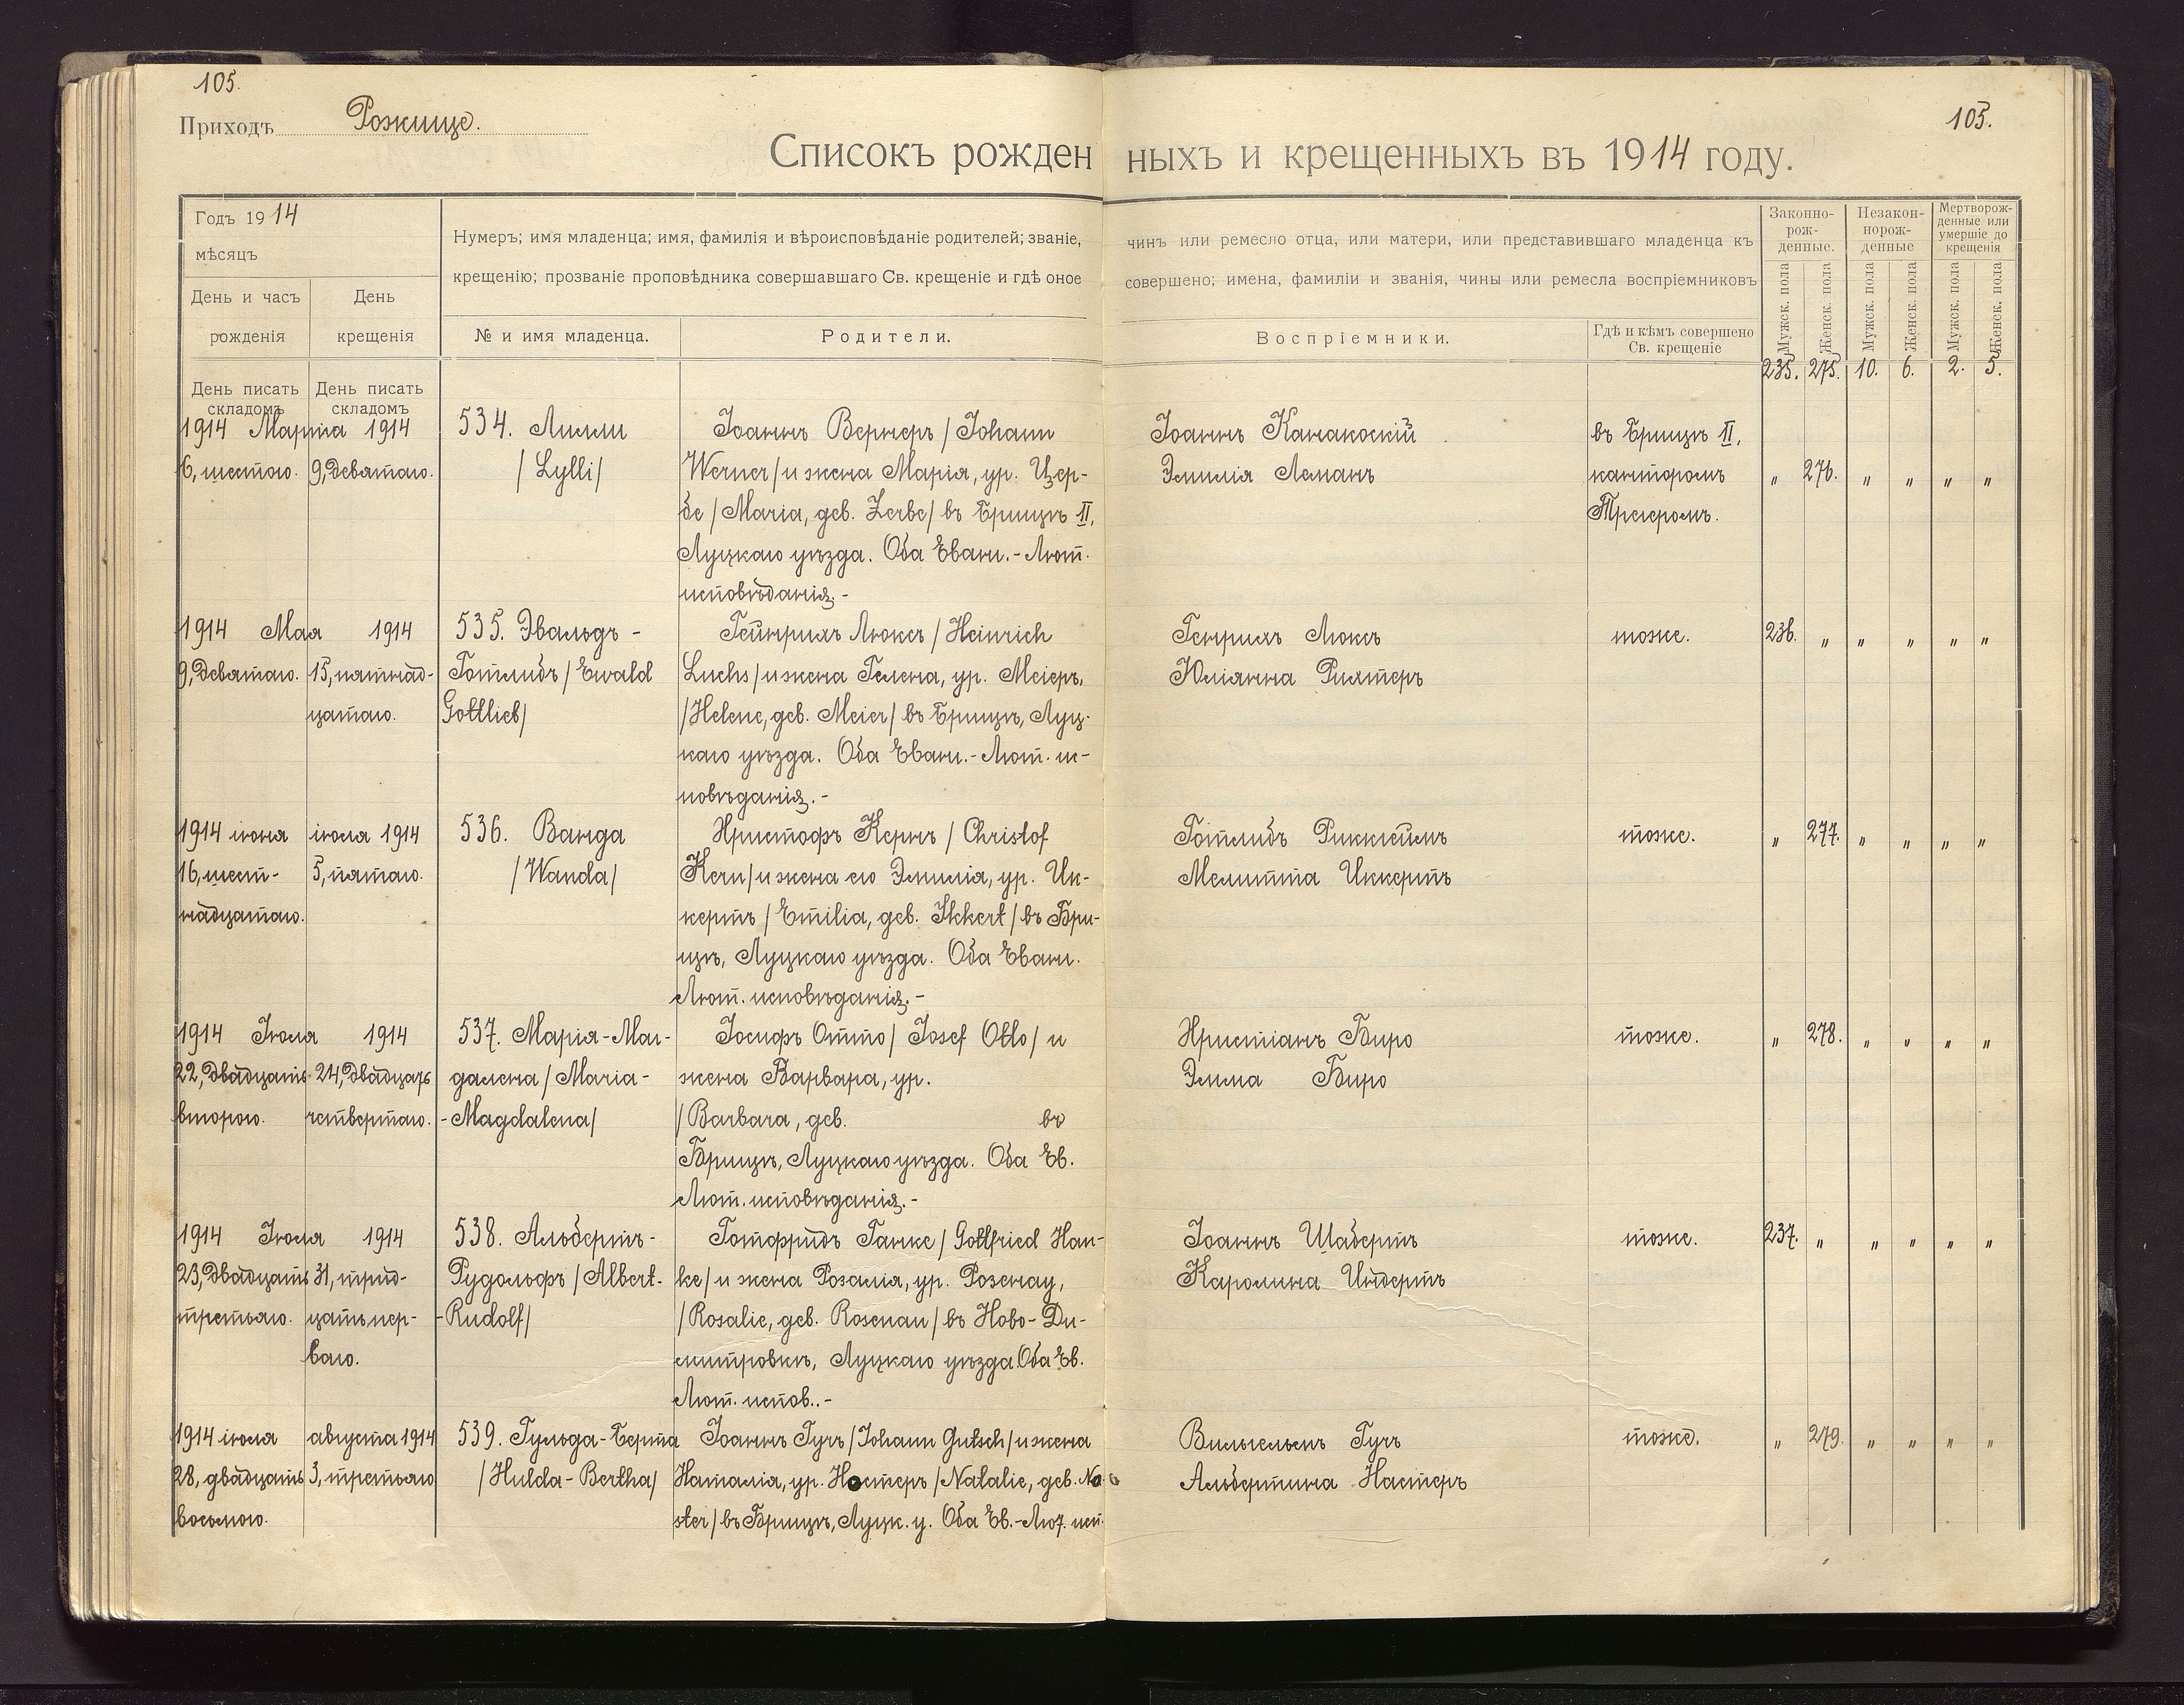 105.
Приходъ Рожище.
105.
Списокъ рожденныхъ и крещенныхъ въ 1914 году.
Годъ 1914
мѣсяцъ
День и часъ рожденія
День крещенія
Нумеръ; имя младенца; имя, фамилія и вѣроисповѣданіе родителей; званіе, чинъ или ремесло отца, или матери, или представившаго младенца къ
крещенію; прозваніе проповѣдника совершавшаго Св. крещеніе и гдѣ оное совершено; имена, фамиліи и званія, чины или ремесла воспріемниковъ
№ и имя младенца.
Родители.
Воспріемники.
Гдѣ и кѣмъ совершено
Св. крещеніе
Законно-
рож-
денные.
Незакон-
норож-
денные
Мертворож-
денные или
умершіе до
крещенія
Мужск. пола
Женск. пола
Мужск. пола
Женск. пола
Мужск. пола
Женск. пола
235. 275. 10. 6. 2. 5.
День писать
складомъ
День писать
складомъ
1914 Марта 1914
6, шестого. 9, девятаго.
534. Лилли
/Lylli/
Іоаннъ Вернеръ /Johann
Werner/ и жена Марія, ур. Цер-
бе /Maria, geb. Zerbe/ въ Брищѣ II,
Луцкаго уѣзда. Оба Еванг.-Лют.
исповѣданія.-
Іоаннъ Канакоскій
Эмилія Леманъ
въ Брищѣ II,
канторомъ
Трегеромъ.
" 276. " " " "
1914 Мая 1914
9, девятаго. 15, пятнад-
цатаго.
535. Эвальдъ -
Готлибъ /Ewald
Gottlieb/
Гейнрихъ Люксъ /Heinrich
Luchs/ и жена Гелена, ур. Мейеръ,
/Helene, geb. Meier/ въ Брищѣ, Луц-
каго уѣзда. Оба Еванг.-Лют. ис-
повѣданія.-
Генрихъ Люксъ
Юліанна Рихтеръ
тоже.
236. " " " " "
1914 іюня іюля 1914
16, шест- 5, пятаго.
надцатаго.
536. Ванда
/Wanda/
Христофъ Кернъ /Christof
Kern/ и жена его Эмилія, ур. Ик-
кертъ /Emilia, geb. Ikkert/ въ Бри-
щѣ, Луцкаго уѣзда. Оба Еванг.
Лют. исповѣданія.-
Готлибъ Риккгеймъ
Мелитта Иккертъ
тоже.
" 277. " " " "
1914 Іюля 1914
22, двадцать 24, двадцать
второго. четвертаго.
537. Марія-Маг-
далена /Maria-
-Magdalena/
Іосифъ Отто /Josef Otto/ и
жена Варвара, ур.
/Barbara, geb. въ
Брищѣ, Луцкаго уѣзда. Оба Ев.
Лют. исповѣданія.-
Христіанъ Биро
Эмма Биро
тоже.
" 278. " " " "
1914 Іюля 1914
23, двадцать 31, трид-
третьяго. цать пер-
ваго.
538. Альбертъ-
Рудольфъ /Albert-
-Rudolf/
Готфридъ Ганке /Gottfried Han-
ke/ и жена Розалія, ур. Розенау,
/Rosalie, geb. Rosenau/ въ Ново-Ди-
митровкѣ, Луцкаго уѣзда. Оба Ев.
Лют. испов..-
Іоаннъ Шабертъ
Каролина Индертъ
тоже.
237. " " " " "
1914 іюля августа 1914
28, двадцать 3, третьяго
восьмого.
539. Гульда-Берта
/Hulda-Bertha/
Іоаннъ Гучъ /Johann Gutsch/ и жена
Наталія, ур. Настеръ /Natalie, geb. Na-
ster/ въ Брищѣ, Луцк. у. Оба Ев.-Лют. исп.
Вильгельмъ Гучъ
Альбертина Настеръ
тоже.
" 279. " " " "